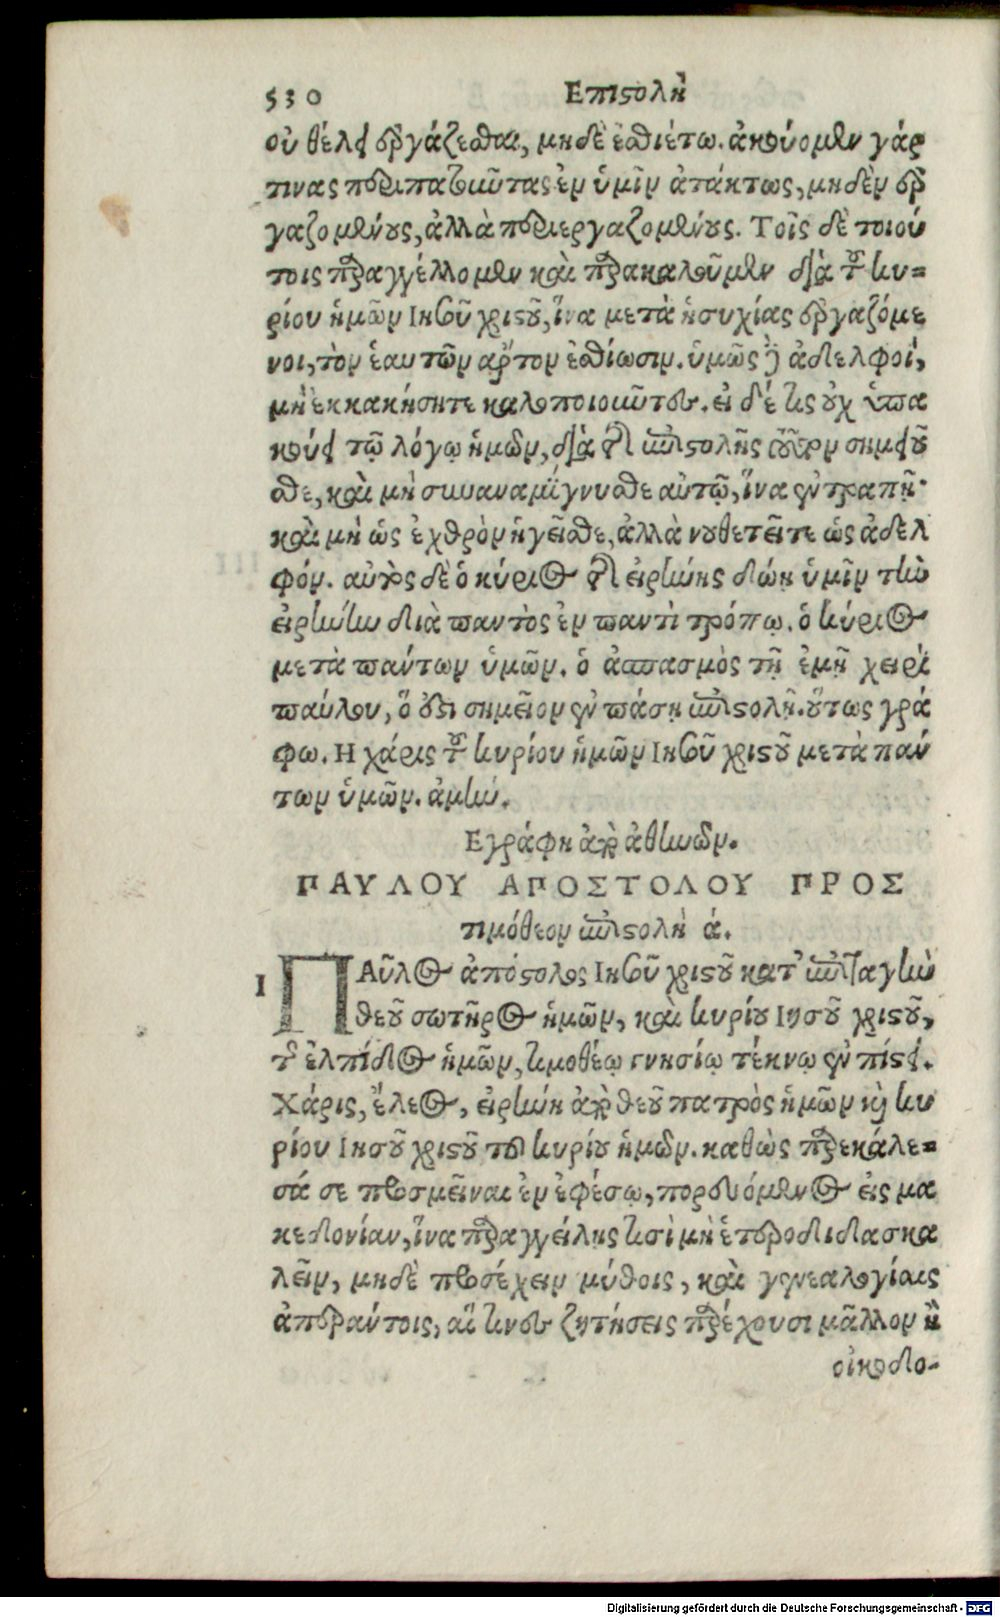 530 Επιστολὴ
οὐ θέλει ἐργάζεσθαι, μηδὲ ἐσθιέτω. ἀκούομεν γάρ
τινας περιπατοῦντας ἐν ὑμῖν ἀτάκτως, μηδὲν ἐρ
γαζομένους, ἀλλὰ περιεργαζομένους. Τοῖς δὲ τοιού
τοις παραγγέλλομεν καὶ παρακαλοῦμεν διὰ τοῦ κυ=
ρίου ἡμῶν Ιησοῦ χριστοῦ, ἵνα μετὰ ἡσυχίας ἐργαζόμε
νοι, τὸν ἑαυτῶν ἄρτον ἐσθίωσιν. ὑμεῖς δὲ ἀδελφοί,
μὴ ἐκκακήσητε καλοποιοῦντες. εἰ δέ τις οὐχ ὑπα
κούει τῷ λόγῳ ἡμῶν, διὰ τῆς ἐπιστολῆς τοῦτον σημειοῦ
σθε, καὶ μὴ συναναμίγνυσθε αὐτῷ, ἵνα ἐντραπῇ·
καὶ μὴ ὡς ἐχθρὸν ἡγεῖσθε, ἀλλὰ νουθετεῖτε ὡς ἀδελ
φόν. αὐτὸς δὲ ὁ κύριος τῆς εἰρήνης δώῃ ὑμῖν τὴν
εἰρήνην διὰ παντὸς ἐν παντὶ τρόπῳ. ὁ κύριος
μετὰ πάντων ὑμῶν. ὁ ἀσπασμὸς τῇ ἐμῇ χειρὶ
παύλου, ὅ ἐστι σημεῖον ἐν πάσῃ ἐπιστολῇ. οὕτως γρά
φω. Η χάρις τοῦ κυρίου ἡμῶν Ιησοῦ χριστοῦ μετὰ πάν
των ὑμῶν. ἀμήν.
Εγράφη ἀπὸ ἀθηνῶν.
ΠΑΥΛΟΥ ΑΠΟΣΤΟΛΟΥ ΠΡΟΣ
τιμόθεον ἐπιστολὴ ά.
I ΠΑῦλος ἀπόστολος Ιησοῦ χριστοῦ κατ' ἐπιταγὴν
θεοῦ σωτῆρος ἡμῶν, καὶ κυρίου Ιησοῦ χριστοῦ,
τῆς ἐλπίδος ἡμῶν, τιμοθέῳ γνησίῳ τέκνῳ ἐν πίστει.
Χάρις, ἔλεος, εἰρήνη ἀπὸ θεοῦ πατρὸς ἡμῶν καὶ κυ
ρίου Ιησοῦ χριστοῦ τοῦ κυρίου ἡμῶν. καθὼς παρεκάλε=
σά σε προσμεῖναι ἐν ἐφέσῳ, πορευόμενος εἰς μα
κεδονίαν, ἵνα παραγγείλῃς τισὶ μὴ ἑτεροδιδασκα
λεῖν, μηδὲ προσέχειν μύθοις, καὶ γενεαλογίαις
ἀπεράντοις, αἵ τινες ζητήσεις παρέχουσι μᾶλλον ἢ
οἰκοδο-
Digitalisierung gefördert durch die Deutsche Forschungsgemeinschaft - DFG